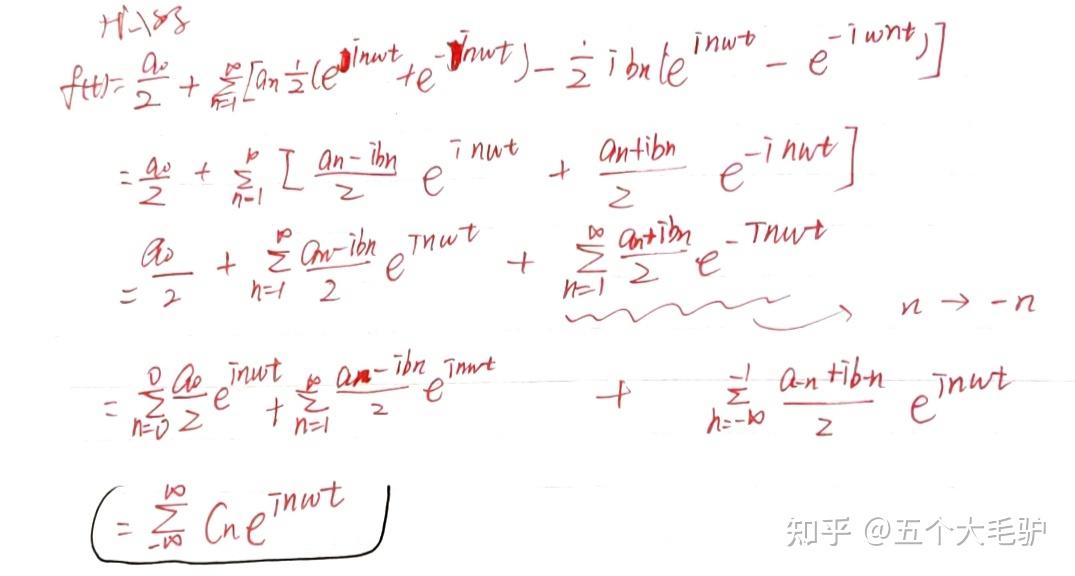 代入得
f(t)= a₀/2 + ∑_{n=1}^{∞} [an 1/2 (e^{inwt} + e^{-inwt}) - 1/2 i bn (e^{inwt} - e^{-iwnt})]
= a₀/2 + ∑_{n=1}^{∞} [ (an-ibn)/2 e^{inwt} + (an+ibn)/2 e^{-inwt} ]
= a₀/2 + ∑_{n=1}^{∞} (an-ibn)/2 e^{inwt} + ∑_{n=1}^{∞} (an+ibn)/2 e^{-inwt}
n → -n
= ∑_{n=0}^{0} a₀/2 e^{inwt} + ∑_{n=1}^{∞} (an-ibn)/2 e^{inwt} + ∑_{n=-∞}^{-1} (a-n+ib-n)/2 e^{inwt}
= ∑_{-∞}^{∞} Cn e^{inwt}
知乎 @五个大毛驴